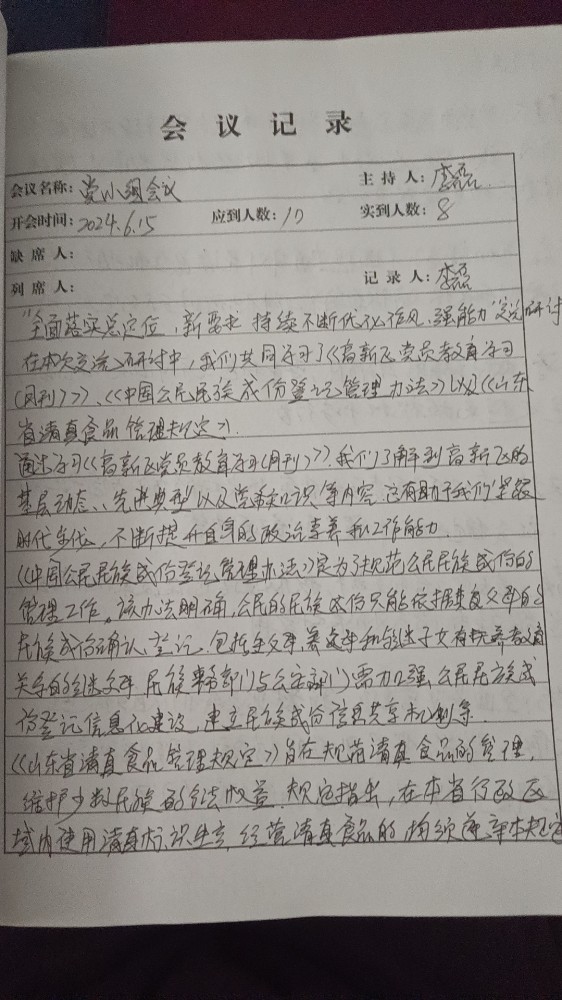 会议记录
会议名称：党小组会议 主持人：李磊
开会时间：2024.6.15 应到人数：10 实到人数：8
缺席人：
列席人： 记录人：李磊
"全面落实总定位，新要求 持续不断优化作风、强能力"交流研讨
在本次交流研讨中，我们共同学习了《高新区党员教育学习
(月刊)》、《中国公民民族成份登记管理办法》以及《山东
省清真食品管理规定》.
通过学习《高新区党员教育学习(月刊)》.我们了解到高新区的
基层动态、先进典型以及党务知识等内容.这有助于我们紧跟
时代步伐，不断提升自身的政治素养和工作能力.
《中国公民民族成份登记管理办法》是为了规范公民民族成份的
管理工作。该办法明确，公民的民族成份只能依据其父母的
民族成份确认、登记.包括生父母、养父母和与继子女有抚养教育
关系的继父母 民族事务部门与公安部门需加强公民民族成
份登记信息化建设，建立民族成份信息共享机制等.
《山东省清真食品管理规定》旨在规范清真食品的管理，
维护少数民族的合法权益.规定指出，在本省行政区
域内使用清真标识生产、经营清真食品的均须遵守本规定